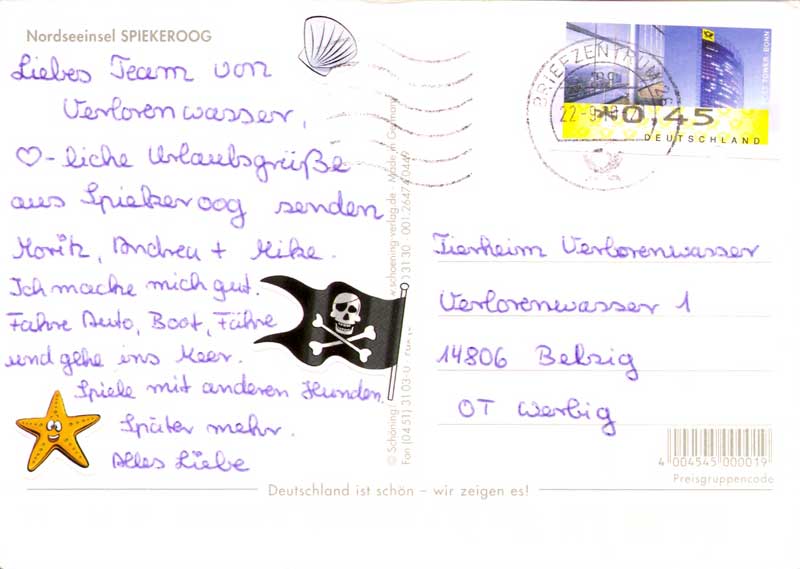 Nordseeinsel SPIEKEROOG
Liebes Team von
Verlorenwasser,
♡-liche Urlaubsgrüße
aus Spiekeroog senden
Moritz, Andrea + Mike.
Ich mache mich gut.
Fahre Auto, Boot, Fähre
und gehe ins Meer.
Spiele mit anderen Hunden.
Später mehr.
Alles Liebe
BRIEFZENTRUM
22-9
0,45
DEUTSCHLAND
TOWER, BONN
Tierheim Verlorenwasser
Verlorenwasser 1
14806 Belzig
OT Werbig
4 004545 000019
Preisgruppencode
© Schöning
Fon (04 51) 31 03-0
schoening-verlag.de - Made in Germany
31 30 001 2647 0449
Deutschland ist schön – wir zeigen es!